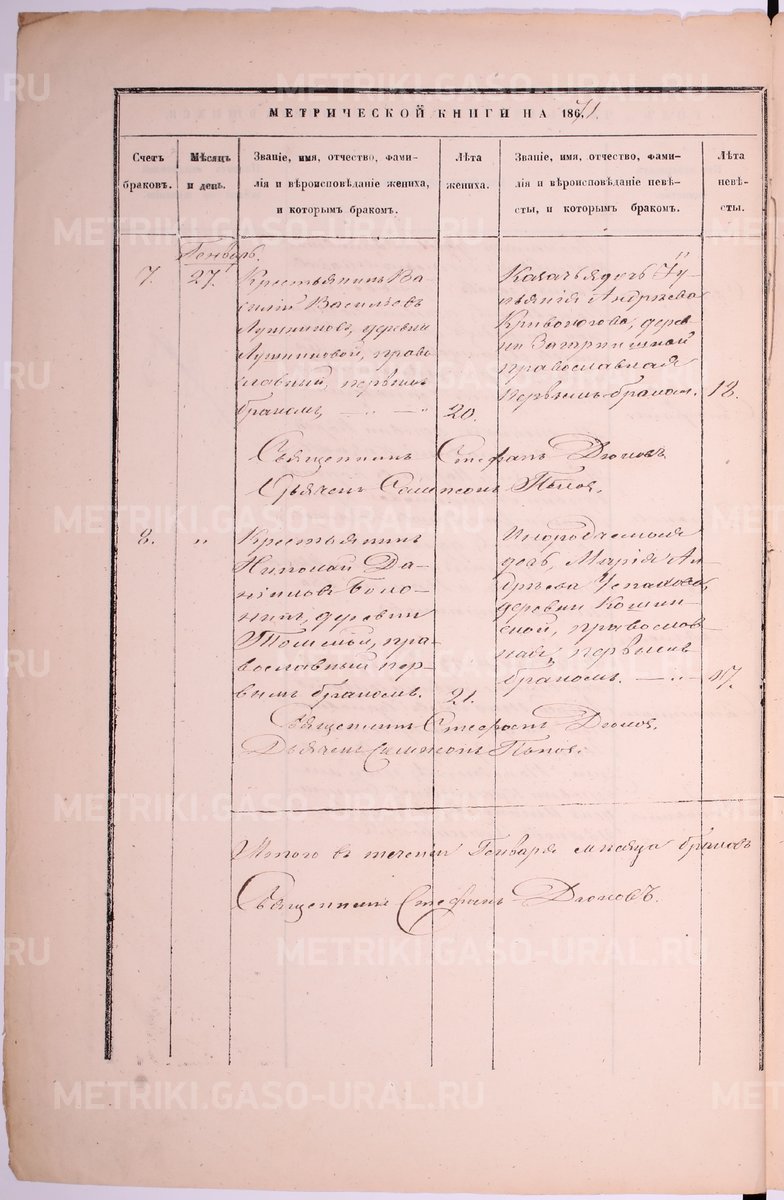 МЕТРИЧЕСКОЙ КНИГИ НА 1871.
Счетъ
браковъ.
Мѣсяцъ
и день.
Званіе, имя, отчество, фами-
лія и вѣроисповѣданіе жениха,
и которымъ бракомъ.
Лѣта
жениха.
Званіе, имя, отчество, фами-
лія и вѣроисповѣданіе невѣ-
сты, и которымъ бракомъ.
Лѣта
невѣ-
сты.
Генварь.
7.
27
Крестьянинъ Ва-
силій Васильевъ
Лушниковъ, деревни
Лушниковой, право
славный, первымъ
бракомъ,
20.
Казачья дочь
Андреева
Кривоногова, дерев
ни
православная
первымъ бракомъ.
18.
Священникъ Стефанъ Дюковъ
Дьячекъ Сампсонъ Поповъ.
8.
"
Крестьянинъ
Николай Да-
ниловъ
деревни
пра-
вославный пер-
вымъ бракомъ.
21.
дочь, Марія Ан-
дреева
деревни
православ-
ная, первымъ
бракомъ.
17.
Священникъ Стефанъ Дюковъ.
Дьячекъ Сампсонъ Поповъ.
Итого въ теченіи Генваря мѣсяца браковъ
Священникъ Стефанъ Дюковъ.
METRIKI.GASO-URAL.RU